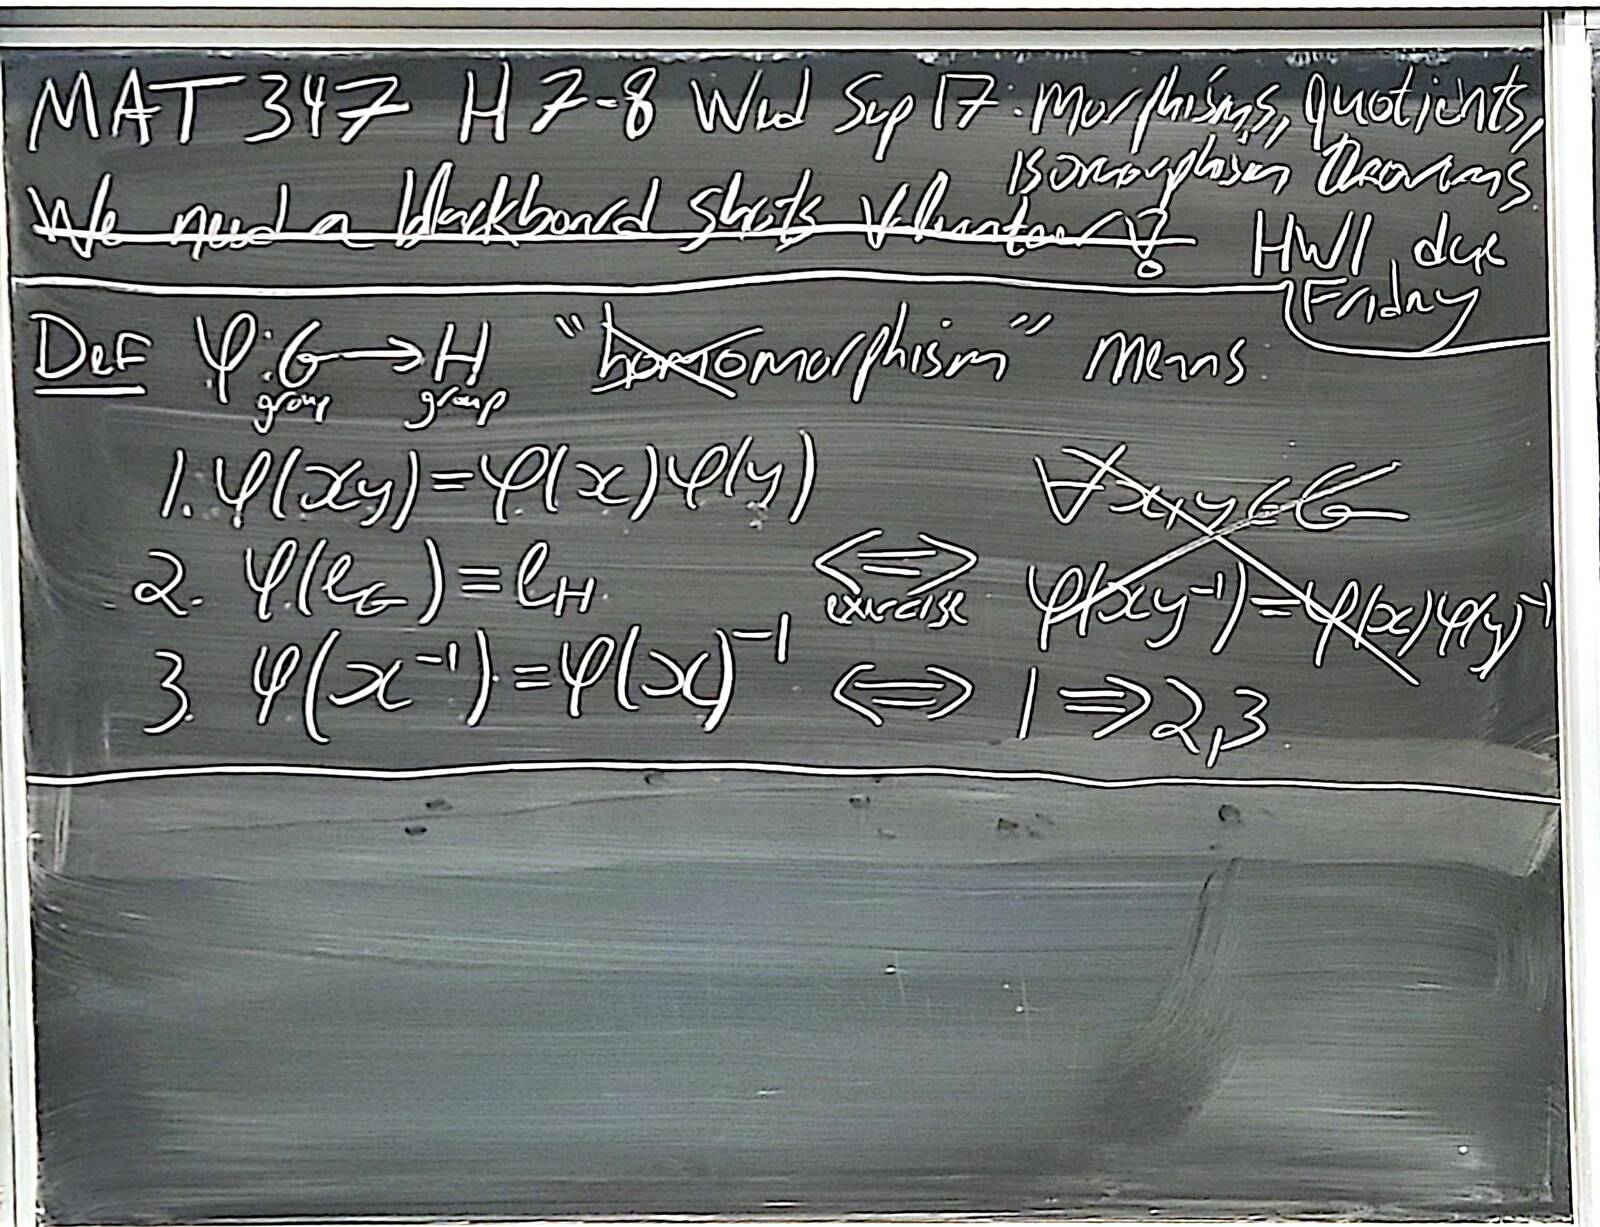 MAT 347 H 7-8 Wed Sep 17: Morphisms, quotients,
isomorphism theorems
We need a blackboard shots volunteer!
HW1 due
Friday
Def φ: G → H "homomorphism" means
group group
1. φ(xy) = φ(x)φ(y) ∀x,y∈G
2. φ(e_G) = e_H ⇔ φ(xy⁻¹) = φ(x)φ(y)⁻¹
exercise
3. φ(x⁻¹) = φ(x)⁻¹ ⇔ 1 ⇒ 2,3